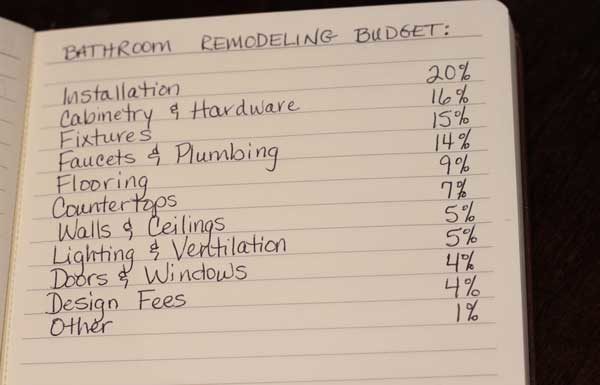 BATHROOM REMODELING BUDGET:
Installation 20%
Cabinetry & Hardware 16%
Fixtures 15%
Faucets & Plumbing 14%
Flooring 9%
Countertops 7%
Walls & Ceilings 5%
Lighting & Ventilation 5%
Doors & Windows 4%
Design Fees 4%
Other 1%